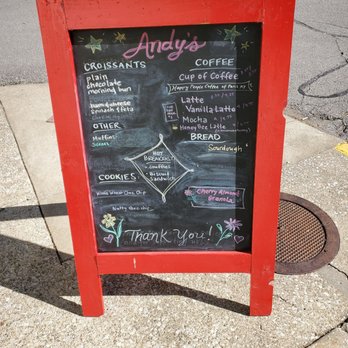 Andy's
CROISSANTS
plain
chocolate
morning bun
ham & cheese
spinach & feta
OTHER
Muffins
Scones
COOKIES
Chip
Nutty choc chip
HOT
BREAKFAST
biscuit
sandwich
COFFEE
Cup of Coffee
Happy People Coffee
Latte
Vanilla Latte
Mocha
Honey Bee Latte
BREAD
Sourdough
Cherry Almond
Granola
Thank You!